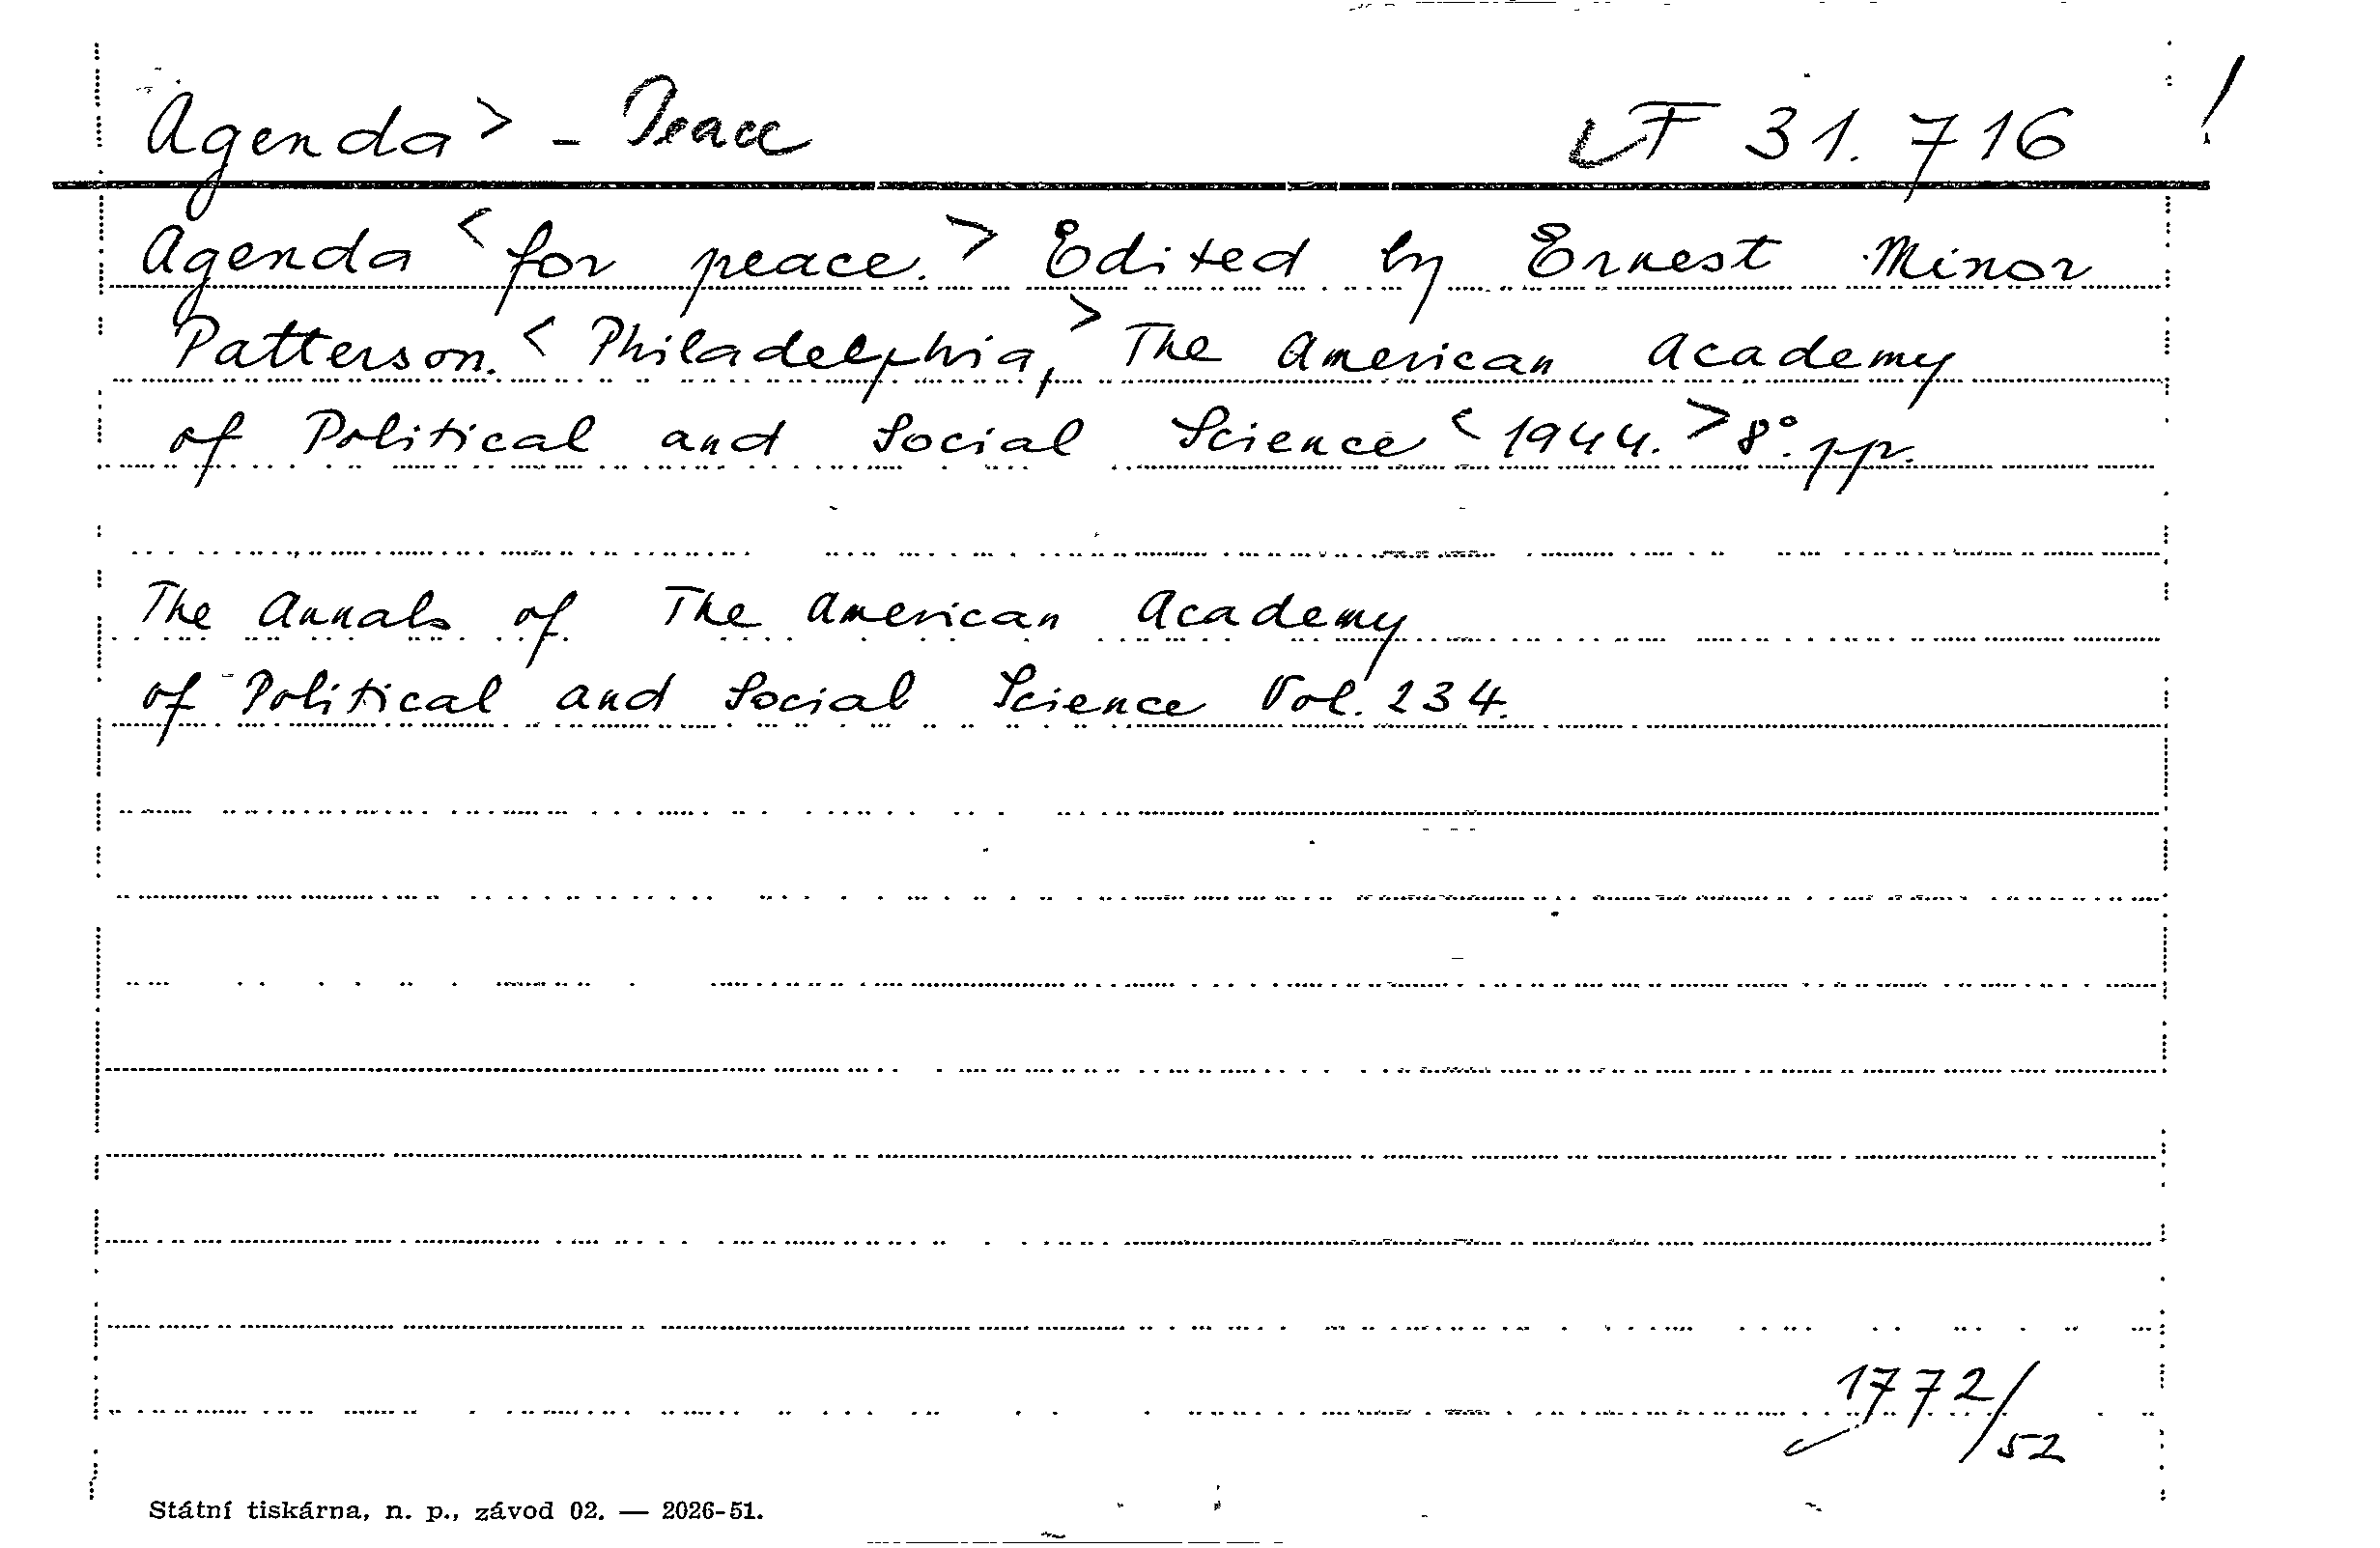 Agenda > - Peace F 31.716 !
Agenda < for peace. > Edited by Ernest Minor
Patterson. < Philadelphia, > The American Academy
of Political and Social Science < 1944. > 8°. pp.
The Annals of The American Academy
of Political and Social Science Vol. 234.
1772/52
Státní tiskárna, n. p., závod 02. — 2026-51.